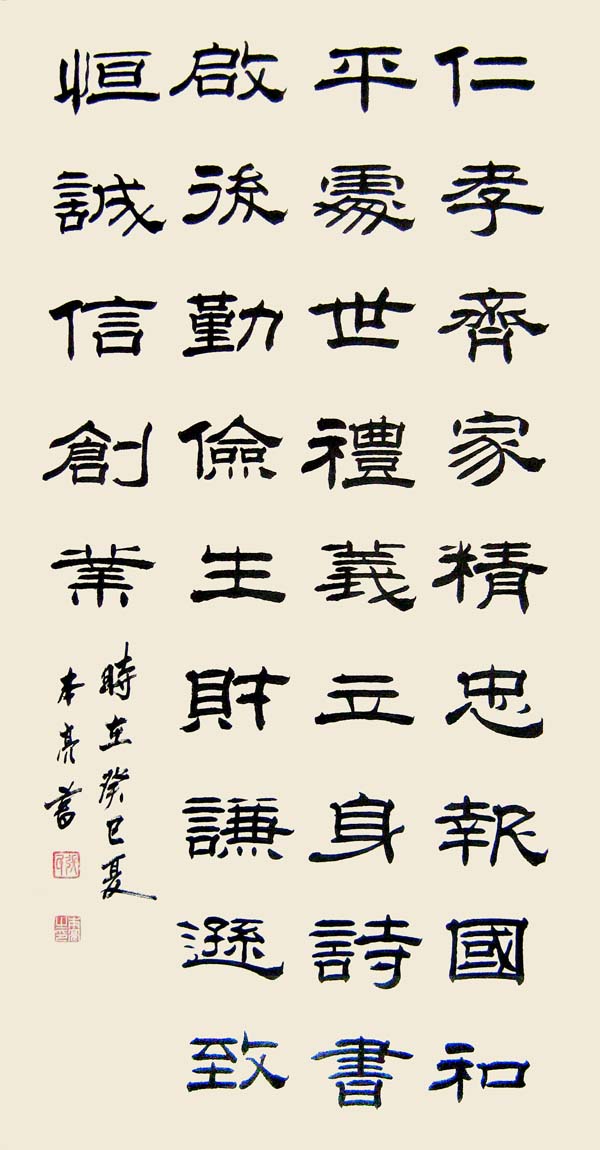 仁孝齊家精忠報國和
平處世禮義立身詩書
啟後勤儉生財謙遜致
恒誠信創業
時在癸巳夏
本亮書